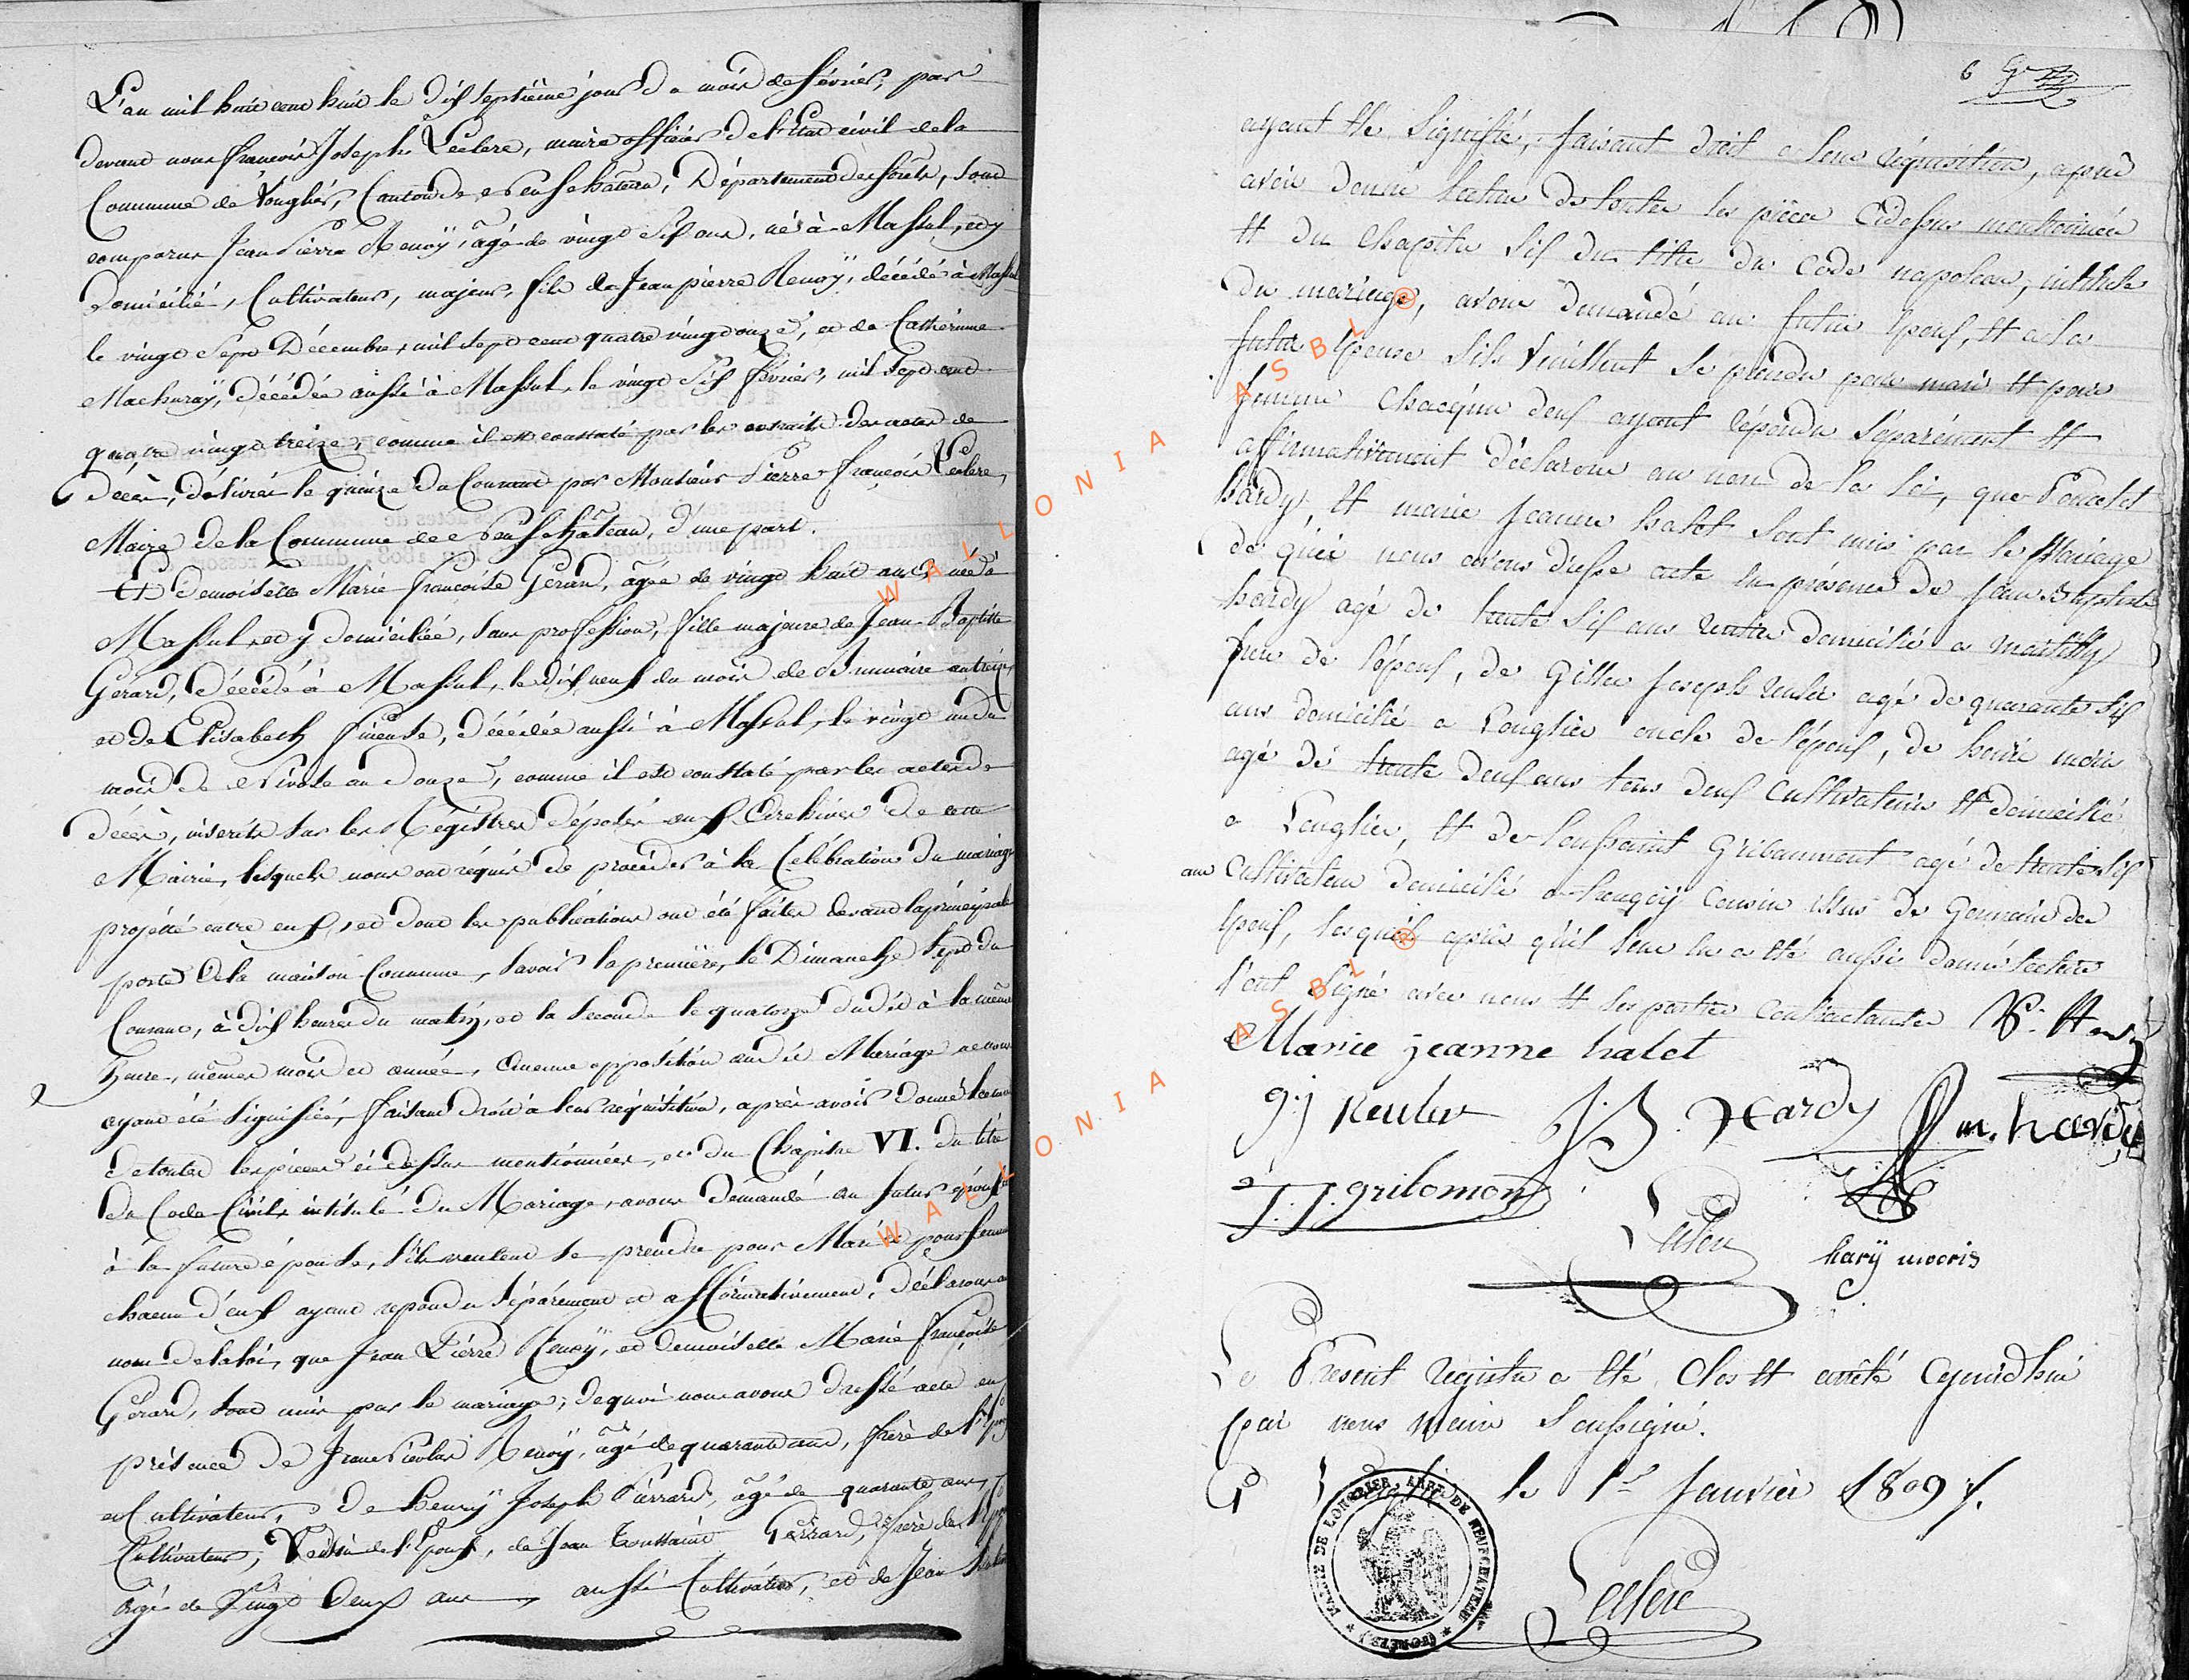 L'an mil huit cent huit le dix septième jour du mois de février, par
devant nous françois Joseph Leclere, maire officier de l'Etat civil de la
Commune de Longlier, Canton de Neufchateau, Département des forêts, sont
comparus Jean Pierre Renoÿ, âgé de vingt six ans, né à Massul, et y
Domicilié, Cultivateur, majeur, fils de Jean pierre Renoÿ, décédé à Massul
le vingt sept Décembre, mil sept cent quatre vingt onze, et de Cathérinne
Machuraÿ, décédée aussi à Massul, le vingt six février, mil sept cent
quatre vingt treize, comme il est constaté par les extraits des actes de
Décès, délivrés le quinze du Courant par Monsieur Pierre françois Leclere,
Maire de la Commune de Neufchateau, d'une part.
Et Demoiselle Marie françoise Gérard, âgée de vingt huit ans, née à
Massul, et y domiciliée, sans profession, fille majeure de Jean Baptiste
Gérard, Décédé à Massul, le dix neuf du mois de Brumaire an treize
et de Elisabeth, décédée aussi à Massul, le vingt un du
mois de Nivose an douze, comme il est constaté par les actes de
décès, inscrits sur les Régistres déposés aux Archives de cette
Mairie, lesquels nous ont réquis de procéder à la Célébration du mariage
projetté entre eux, et dont les publications ont été faites devant la principale
porte de la maison Commune, savoir la première, le Dimanche sept du
Courant, à dix heures du matin, et la seconde le quatorze dudit à la même
heure, mêmes mois et année, Aucune opposition audit Mariage ne nous
ayant été signifiée, faisant droit à leur réquisition, après avoir donné lecture
de toutes les pièces ci dessus mentionnées, et du Chapitre VI. du titre
du Code Civil, intitulé du Mariage, avons demandé au futur époux et
à la future épouse, s'ils veulent se prendre pour Mari et pour femme
chacun d'eux ayant repondu séparément et affirmativement, déclarons au
nom de la loi, que Jean Pierre Renoÿ, et demoiselle Marie françoise
Gérard, sont unis par le mariage; de quoi nous avons dressé acte en
présence de Jean Nicolas Renoÿ, âgé de quarante ans, frère de l'Epoux
Cultivateur, de henrÿ Joseph Pierrard, âgé de quarante ans,
Cultivateur, Voisin de l'Epoux, de Jean Toussaint Gérard, frère de l'Epouse
âgé de vingt deux ans, aussi Cultivateur, et de Jean
6
ayant été signifié, faisant droit a leur réquisition, aprés
avoir donné lecture de toutes les pièces cidessus mentionnées
et du chapitre six du titre du Code napoleon, intitulé
du mariage, avons demandé au futur époux, et a la
future épouse s'ils veuillent se prendre pour mari et pour
femme chacqun deux ayant répondu séparément et
affirmativement déclarons au nom de la loi, que Poncelet
hardy, et marie jeanne halet sont unis par le Mariage
de quoi nous avons dressé acte en présence de jean Baptiste
hardy agé de trente six ans domicilié a martilly
frere de l'époux, de Gilles joseph reuler agé de quarante six
ans domicilié a Longlier oncle de l'époux, de henri moris
agé de trente deux ans tous deux cultivateurs et domicilié
a Longlier, et de toussaint Gribaumont agé de trente six
ans cultivateur domicilié a cousin issus de Germain des
époux, lesquels après qu'il leur en a été aussi donné lecture
l'ont signé avec nous et les parties contractantes P. Hardy
Marie jeanne halet
g:j Reuler J:B Hardy m. hardÿ
J.J. grilomont
Leclere
harÿ moeris
Le Present registre a été clos et arrêté cejourd'hui
par nous Maire soussigné.
A Longlier le 1er Janvier 1809.
MAIRIE DE LONGLIER, ARRT. DE NEUFCHATEAU (FORÊTS)
Leclere
WALLONIA ASBL @
WALLONIA ASBL @